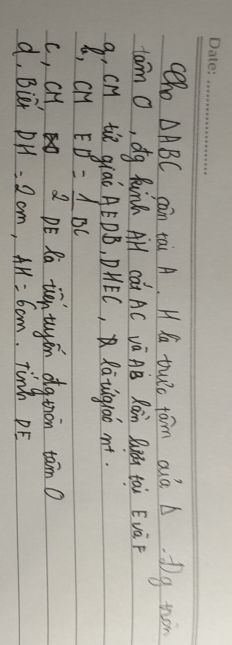 Date: ....................
Cho ΔABC cân tại A. H là trực tâm của Δ. Đg tròn
tâm O, đg kính AH cắt AC và AB lần lượt tại E và F
a, CM tứ giác AEDB, DHEC, là tứ giác nt.
b, CM ED = 1/2 BC
c, CM DE là tiếp tuyến đg tròn tâm O
d, Biết DH = 2 cm, AH = 6cm. Tính DE